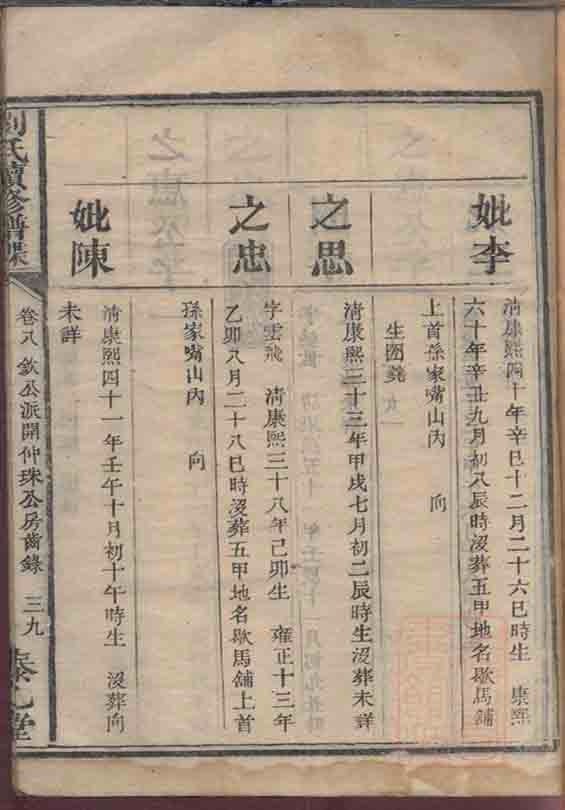 妣李
清康熙四十年辛巳十二月二十六巳時生 康熙
六十年辛丑九月初八辰時沒葬五甲地名歇馬舖
上首孫家嘴山內 向
生囝堯
之思
清康熙三十三年甲戌七月初二辰時生沒葬未詳
之忠
字雲飛 清康熙三十八年己卯生 雍正十三年
乙卯八月二十八巳時沒葬五甲地名歇馬舖上首
孫家嘴山內 向
妣陳
清康熙四十一年壬午十月初十午時生 沒葬向
未詳
劉氏續修譜牒
卷八 欽公派開仲珠公房齒錄 三九